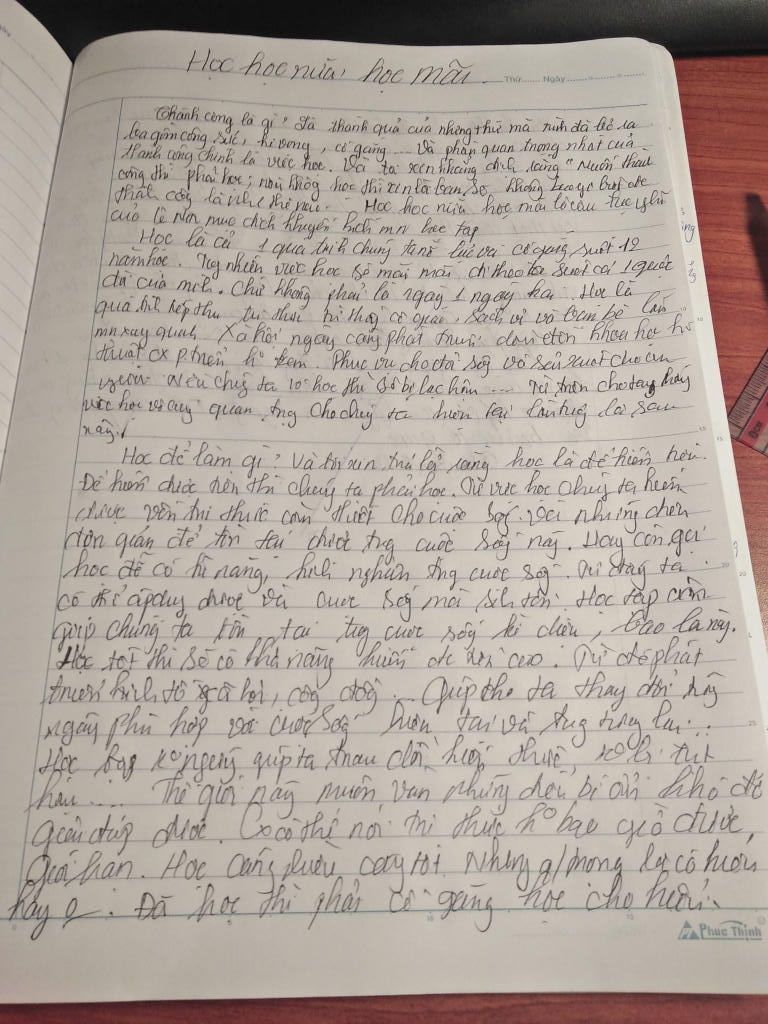 Học học nữa, học mãi.
Thứ ..... Ngày
Thành công là gì? Là thành quả của những thứ mà mình đã bỏ ra
bao gồm công sức, hi vọng, cố gắng ... Và phần quan trọng nhất của
thành công chính là việc học. Và ta xin khẳng định rằng "Muốn thành
công thì phải học; nếu không học thì xin là bạn sẽ không
thành công là như thế nào. Học học nữa học mãi là câu
của Lê Nin mục đích khuyến khích mn học tập
Học là cả 1 quá trình chúng ta nỗ lực và cố gắng suốt 12
năm học. Tuy nhiên việc học sẽ mãi mãi đi theo ta suốt cả 1 cuộc
đời của mình. Chứ không phải là ngày 1 ngày hai. Học là
quá trình tiếp thu tri thức từ thầy cô giáo, sách vở và bạn bè lẫn
mn xung quanh. Xã hội ngày càng phát triển dẫn đến khoa học kĩ
thuật cx p.triển kèm. Phục vụ cho đời sống và sản xuất cho con
người. Nếu chúng ta ko học thì sẽ bị lạc hậu ... Từ trên cho ta thấy
việc học vô cùng quan trọng cho chúng ta hiện tại lẫn tương lai sau
này.
Học để làm gì? Và tôi xin trả lời rằng học là để hiểu hơn.
Để hiểu được hơn thì chúng ta phải học. Từ việc học chúng ta hiểu
được vốn tri thức cần thiết cho cuộc sống. Với những điều
đơn giản để tồn tại được trg cuộc sống này. Hay còn gọi
học để có kĩ năng, kinh nghiệm trg cuộc sống. Từ đấy ta
có thể áp dụng được và cuộc sống mới sinh tồn. Học tập còn
giúp chúng ta tồn tại trg cuộc sống kì diệu, bao la này.
Học tốt thì sẽ có khả năng hiểu cao. Từ đó phát
triển kinh tế xã hội, cộng đồng ... Giúp cho ta thay đổi từng
ngày phù hợp với cuộc sống hiện tại và trg tương lai...
Học tập ko ngừng giúp ta trau dồi kiến thức, ko bị tụt
hậu .... Thế giới này muôn vàn những điều bí ẩn khó để
giải đáp được. Cx có thể nói tri thức ko bao giờ được
giới hạn. Học càng nhiều càng tốt. Nhưng q/trọng là có hiểu
hay o. Đã học thì phải cố gắng học cho hiểu.
Phúc Thịnh